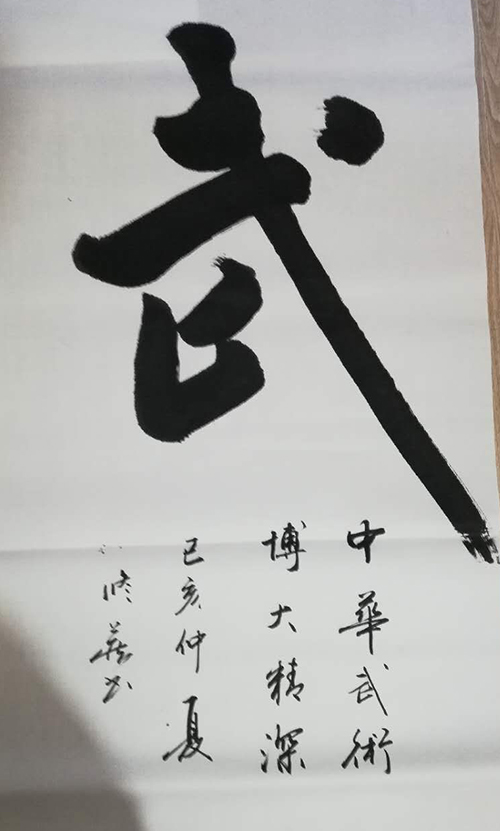 武
中華武術
博大精深
己亥仲夏
修
书